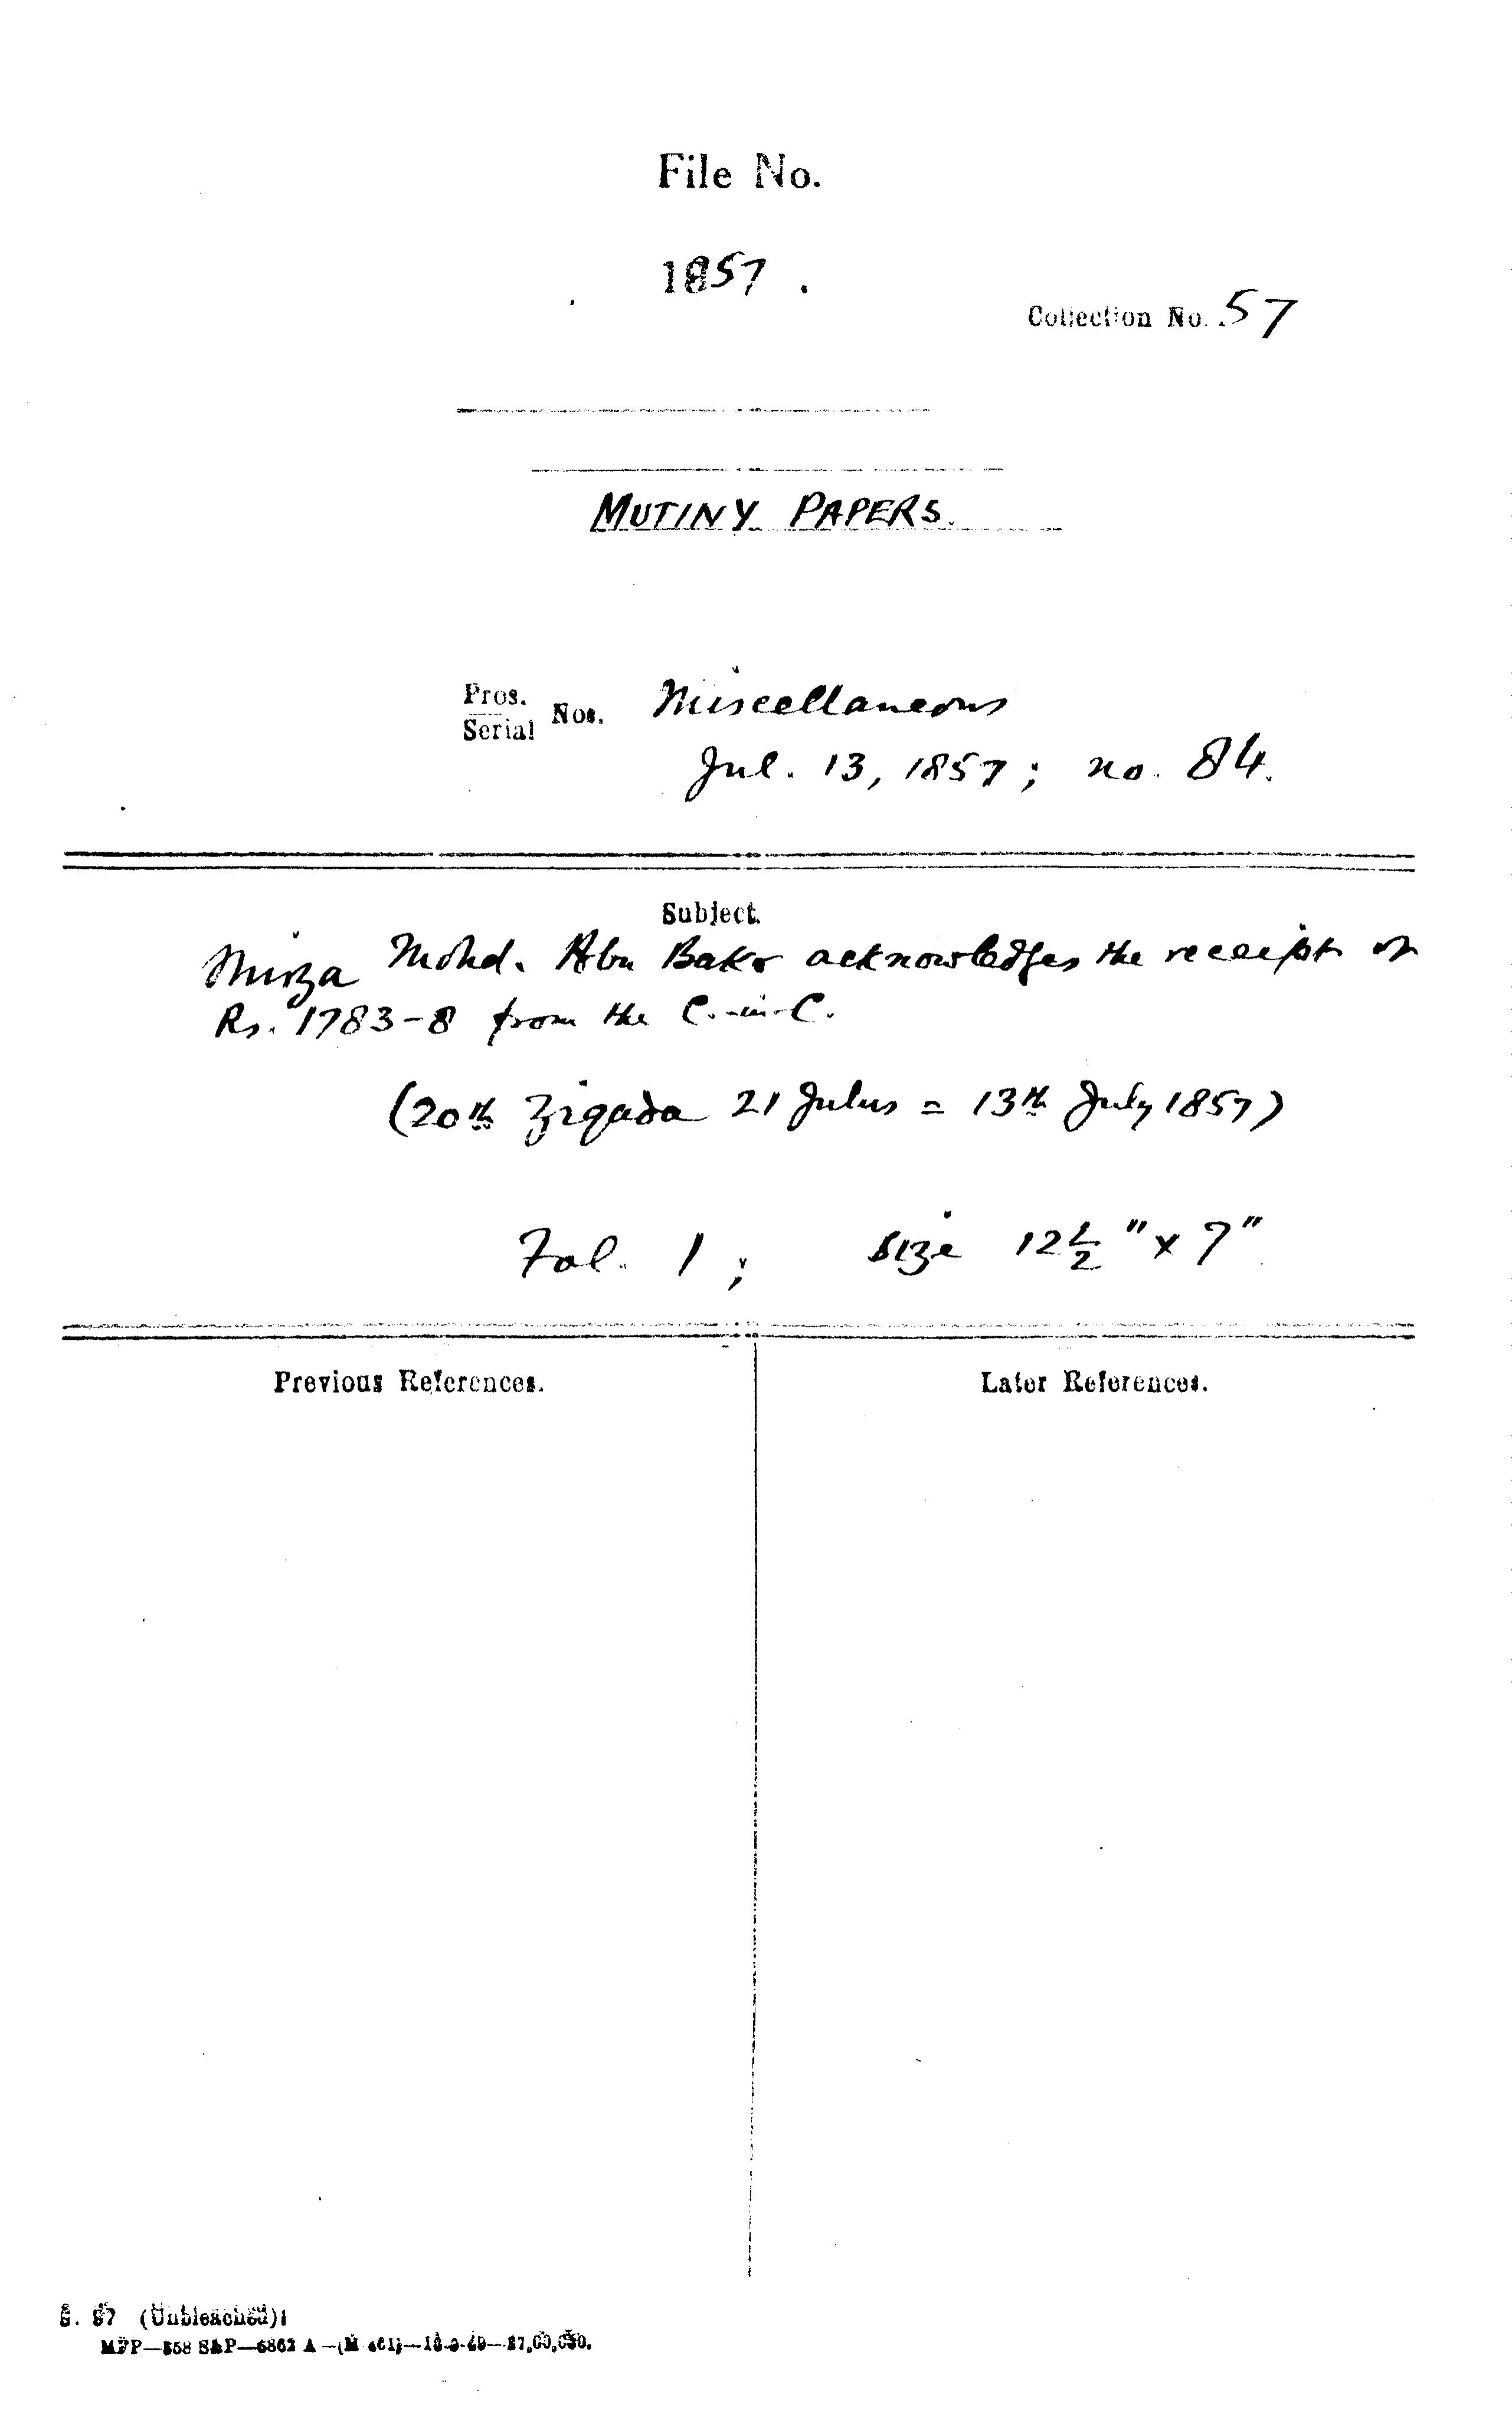 File No.
1857.
Collection No. 57
MUTINY PAPERS.
Pros.
Serial Nos. Miscellaneous
Jul. 13, 1857; no. 84.
Subject.
Mirza Mohd. Abu Bakr acknowledges the receipt of
Rs. 1783-8 from the C.-in-C.
(20th Ziqada 21 Julus = 13th July 1857)
Fol. 1; Size 12½" x 7"
Previous References.
Later References.
S. 97 (Unbleached)